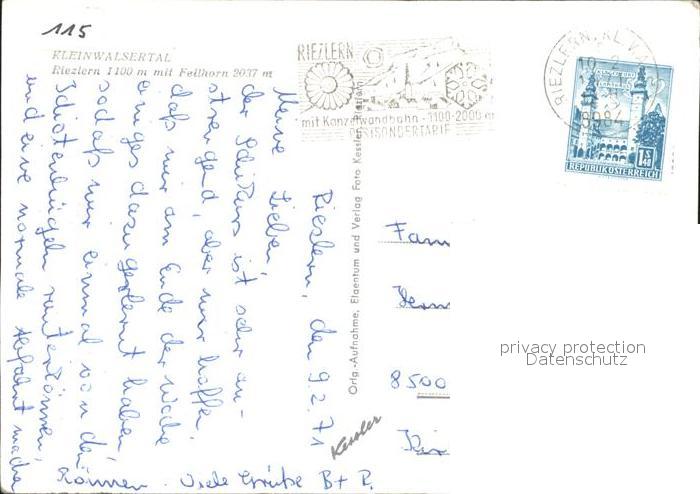 115
KLEINWALSERTAL
Riezlern 1100 m mit Fellhorn 2037 m
RIEZLERN
mit Kanzelwandbahn - 1100-2000 m
RIEZLERN, KL. W
8984
1 S 40
REPUBLIK ÖSTERREICH
Orig.-Aufnahme, Eigentum und Verlag Foto Kessler, Riezlern
Riezlern, den 9.2.71
Meine Lieben,
der Schikurs ist sehr an-
strengend, aber wir hoffen,
daß wir am Ende der Woche
einiges dazugelernt haben,
sodaß wir einmal von den
Idiotenhügeln runterkönnen,
und eine normale Abfahrt machen
können. Viele Grüße B+P.
Fam
8500
Kessler
privacy protection
Datenschutz